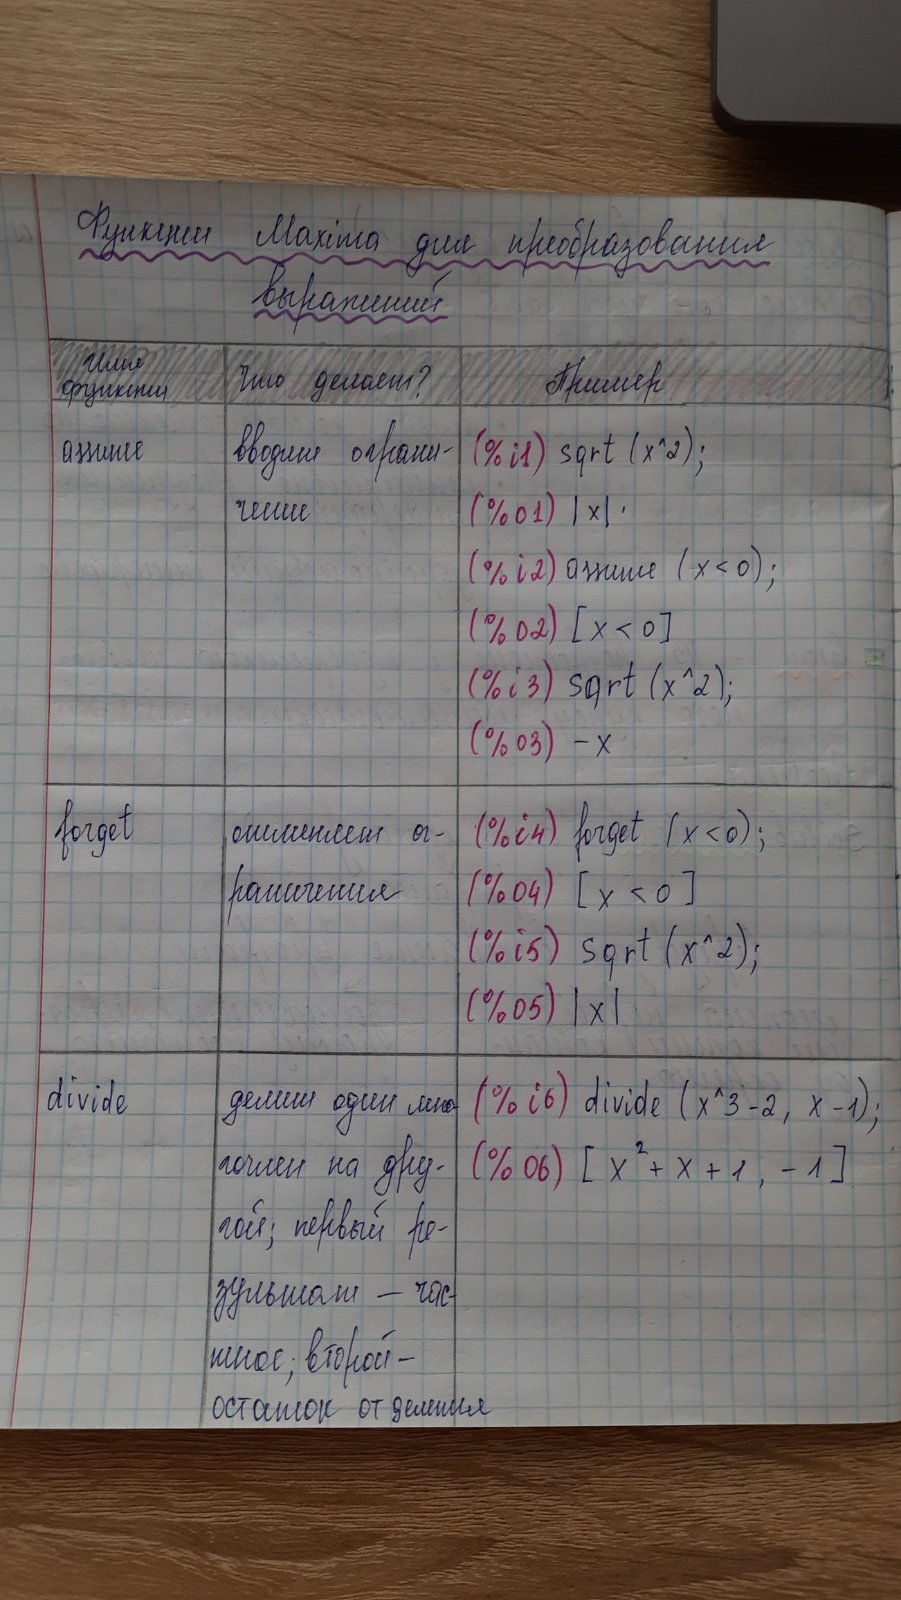 Функции Maxima для преобразования
выражений
Имя
функции
Что делает?
Пример
assume
вводит ограни-
чение
(%i1) sqrt (x^2);
(%o1) |x|
(%i2) assume (x<0);
(%o2) [x<0]
(%i3) sqrt (x^2);
(%o3) -x
forget
отменяет ог-
раничения
(%i4) forget (x<0);
(%o4) [x<0]
(%i5) sqrt (x^2);
(%o5) |x|
divide
делит один мно-
гочлен на дру-
гой; первый ре-
зультат – час-
тное; второй –
остаток от деления
(%i6) divide (x^3-2, x-1);
(%o6) [x²+x+1, -1]